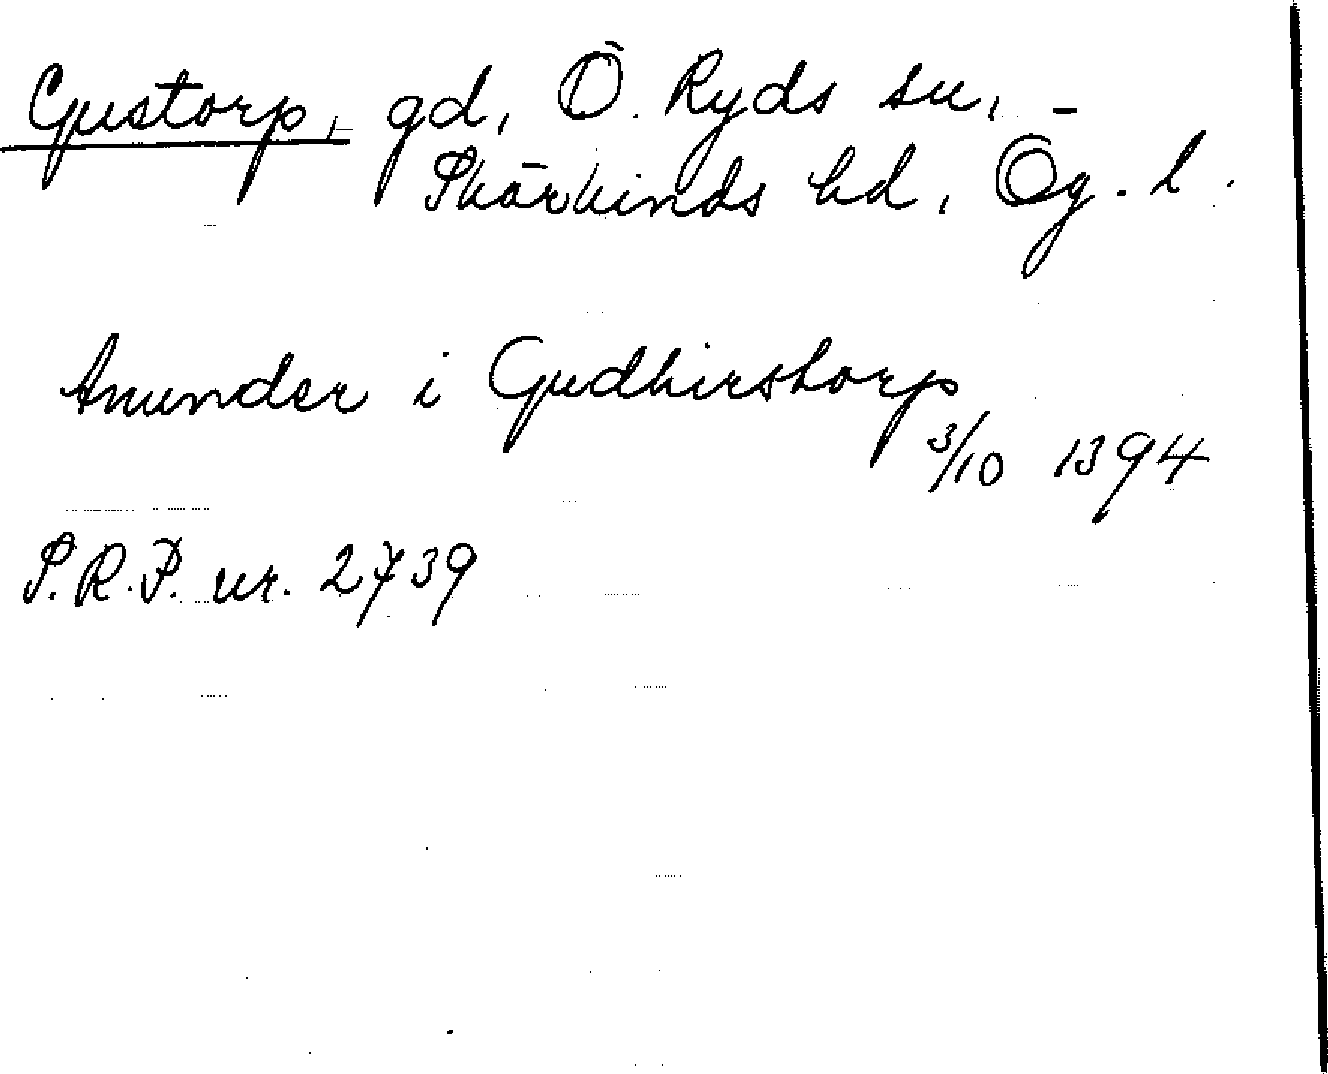 Gustorp, gd, Ö. Ryds sn, -
Skärkinds hd, Ög. l.
Anunder i Gudhirstorp
3/10 1394
S.R.P. nr. 2739